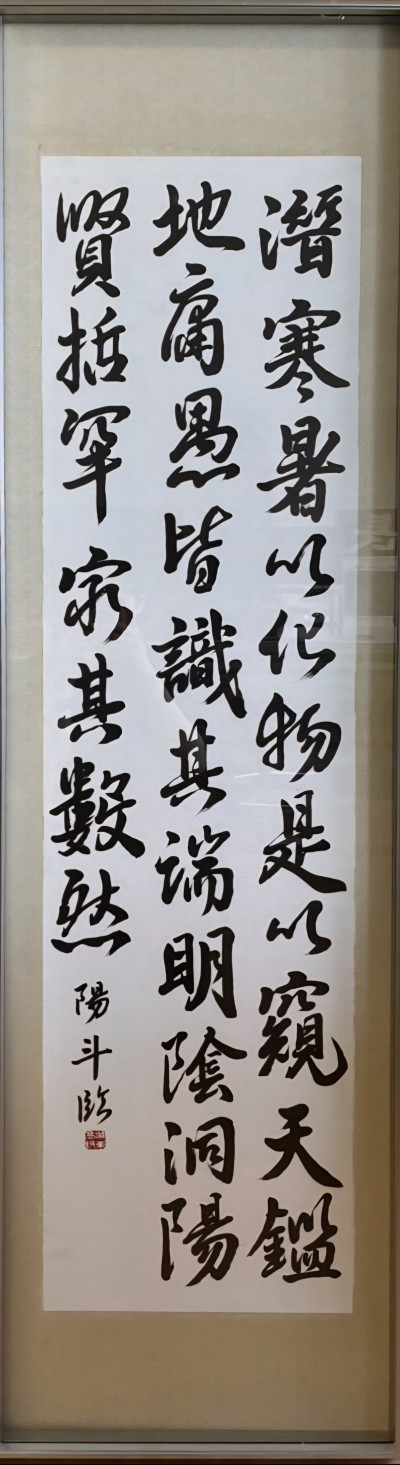 潛寒暑以化物是以窺天鑑
地庸愚皆識其端明陰洞陽
賢哲罕窮其數然
陽斗臨